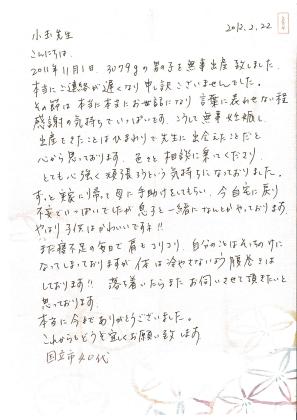 2012.2.22
小玉先生
こんにちは。
2011年11月1日、3079gの男の子を無事出産致しました。
本当にご連絡が遅くなり申し訳ございませんでした。
その節は本当に本当にお世話になり言葉に表わせない程
感謝の気持ちでいっぱいです。こうして無事妊娠し
出産できたことはひまわりで先生に出会えたことだと
心から思っております。色々と相談に乗てくださり、
とても心強く頑張ろうという気持ちになっておりました。
ずっと実家に帰って母に手助けをしてもらい、今自宅に戻り
不安でいっぱいでしたが息子と一緒になんとかやっております。
やはり子供はかわいいです!!
まだ寝不足の毎日で肩もコリコリ、自分のことはそっちのけに
なってしまっておりますが体は冷やさないよう腹巻きは
しております!! 落ち着いたらまたお伺いさせて頂きたいと
思っております。
本当に今までありがとうございました。
これからもどうぞ宜しくお願い致します。
国立市 40代